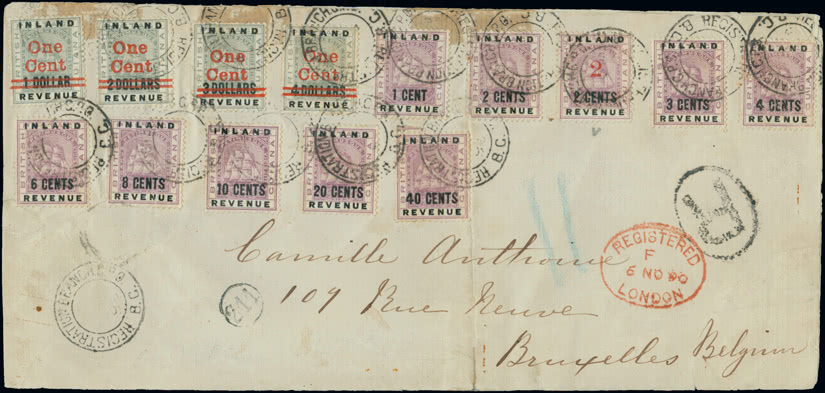 INLAND One Cent 1 DOLLAR REVENUE
INLAND One Cent 2 DOLLARS REVENUE
INLAND One Cent 3 DOLLARS REVENUE
INLAND One Cent 4 DOLLARS REVENUE
INLAND 1 CENT REVENUE
INLAND 2 CENTS REVENUE
INLAND 2 2 CENTS REVENUE
INLAND 3 CENTS REVENUE
INLAND 4 CENTS REVENUE
INLAND BRITISH GUIANA 6 CENTS REVENUE
INLAND BRITISH GUIANA 8 CENTS REVENUE
INLAND BRITISH GUIANA 10 CENTS REVENUE
INLAND BRITISH GUIANA 20 CENTS REVENUE
INLAND BRITISH GUIANA 40 CENTS REVENUE
R
REGISTERED
F
6 NO 90
LONDON
Camille Anthoine
REGISTRATION BRANCH G.P.O. B.C.
211
109 Rue Neuve
Bruxelles Belgium